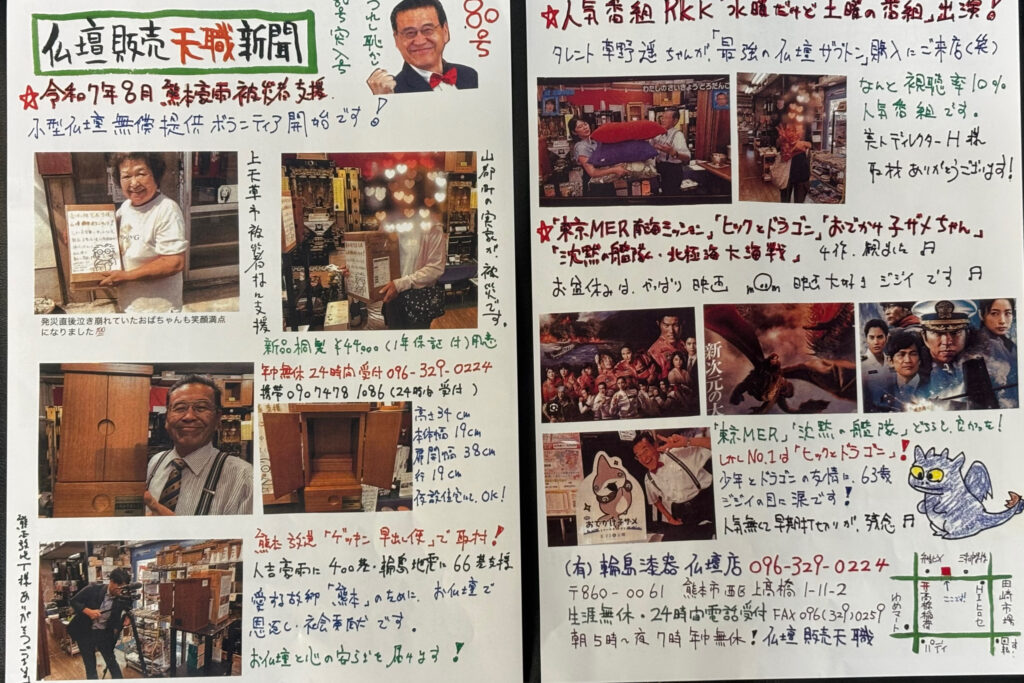 仏壇販売天職新聞
80号
☆令和7年8月 熊本豪雨被災者支援
小型仏壇無償提供ボランティア開始です!
上天草市被災者様に支援
山都町の実家が、被災です。
発災直後泣き崩れていたおばちゃんも笑顔満点
になりました
新品桐製 ¥44,000(1年保証付)用意
年中無休24時間受付 096-329-0224
携帯 090 7478 1086 (24時間受付)
高さ34cm
本体幅19cm
扉開幅38cm
行19cm
仮設住宅にも、OK!
熊本放送"ゲツキン早出し便"で取材!
人吉豪雨に400基・輪島地震に66基支援
愛する故郷「熊本」のために、お仏壇で
恩返し・社会貢献です。
お仏壇と心の安らぎを届けます!
熊本放送T様ありがとうございます!
☆人気番組RKK「水曜だけど土曜の番組」出演!
タレント草野遥ちゃんが「最強の仏壇ザブトン」購入にご来店(笑)
わたしのさいきょうとろたんこ
なんと視聴率10%
人気番組です。
美人ディレクターH様
取材ありがとうございます!
☆「東京MER南海ミッション」「ヒックとドラゴン」「おでかけ子ザメちゃん」
「沈黙の艦隊・北極海大海戦」4作、観ました♬
お盆休みは、やっぱり映画 映画大好きジジイです♬
新次元の大
「東京MER」「沈黙の艦隊」どちらも、良かった!
しかしNo.1は「ヒックとドラゴン」!
少年とドラゴンの友情に、63歳
ジジイの目に涙です!
人気無くて早期打ち切りが、残念♬
おでかけ子ザメ
(有)輪島漆器仏壇店 096-329-0224
〒860-0061 熊本市西区上高橋1-11-2
生涯無休・24時間電話受付 FAX 096(329)0259
朝5時~夜7時年中無休!仏壇販売天職
ここです!
高橋稲荷
ゆめマート
HIヒロセ
田崎市場